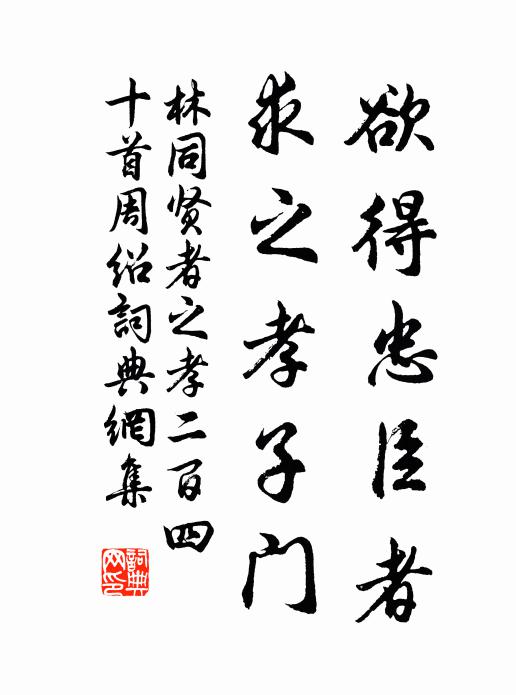 欲得忠臣者
求之孝子门
林同贤者之孝二百四
十首周绍詞典網集
詞典网印